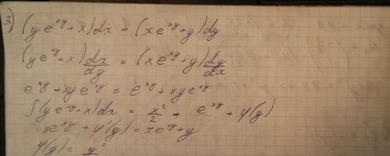 3) (y e^{xy} + x)dx + (x e^{xy} + y)dy
(y e^{xy} + x) dx/dy = (x e^{xy} + y) dy/dx
e^{xy} + xy e^{xy} = e^{xy} + xy e^{xy}
∫(y e^{xy} + x)dx = x²/2 + e^{xy} + φ(y)
x e^{xy} + φ'(y) = x e^{xy} + y
φ(y) = y²